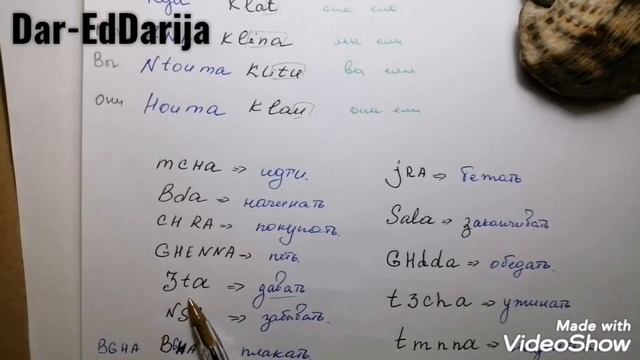 Klat она ела
Dar-EdDarija
Klina мы ели
Вы Ntouma Klitu вы ели
Они Houma Klau они ели
mcHa => идти.
Bda => начинать
CHRA => покупать.
GHENNA => петь.
3ta => давать
NS => забывать.
BGHA плакать.
jRA => бежать
Sala => заканчивать
GHdda => обедать.
t3cha => ужинать
tmnna =>
Made with
VideoShow